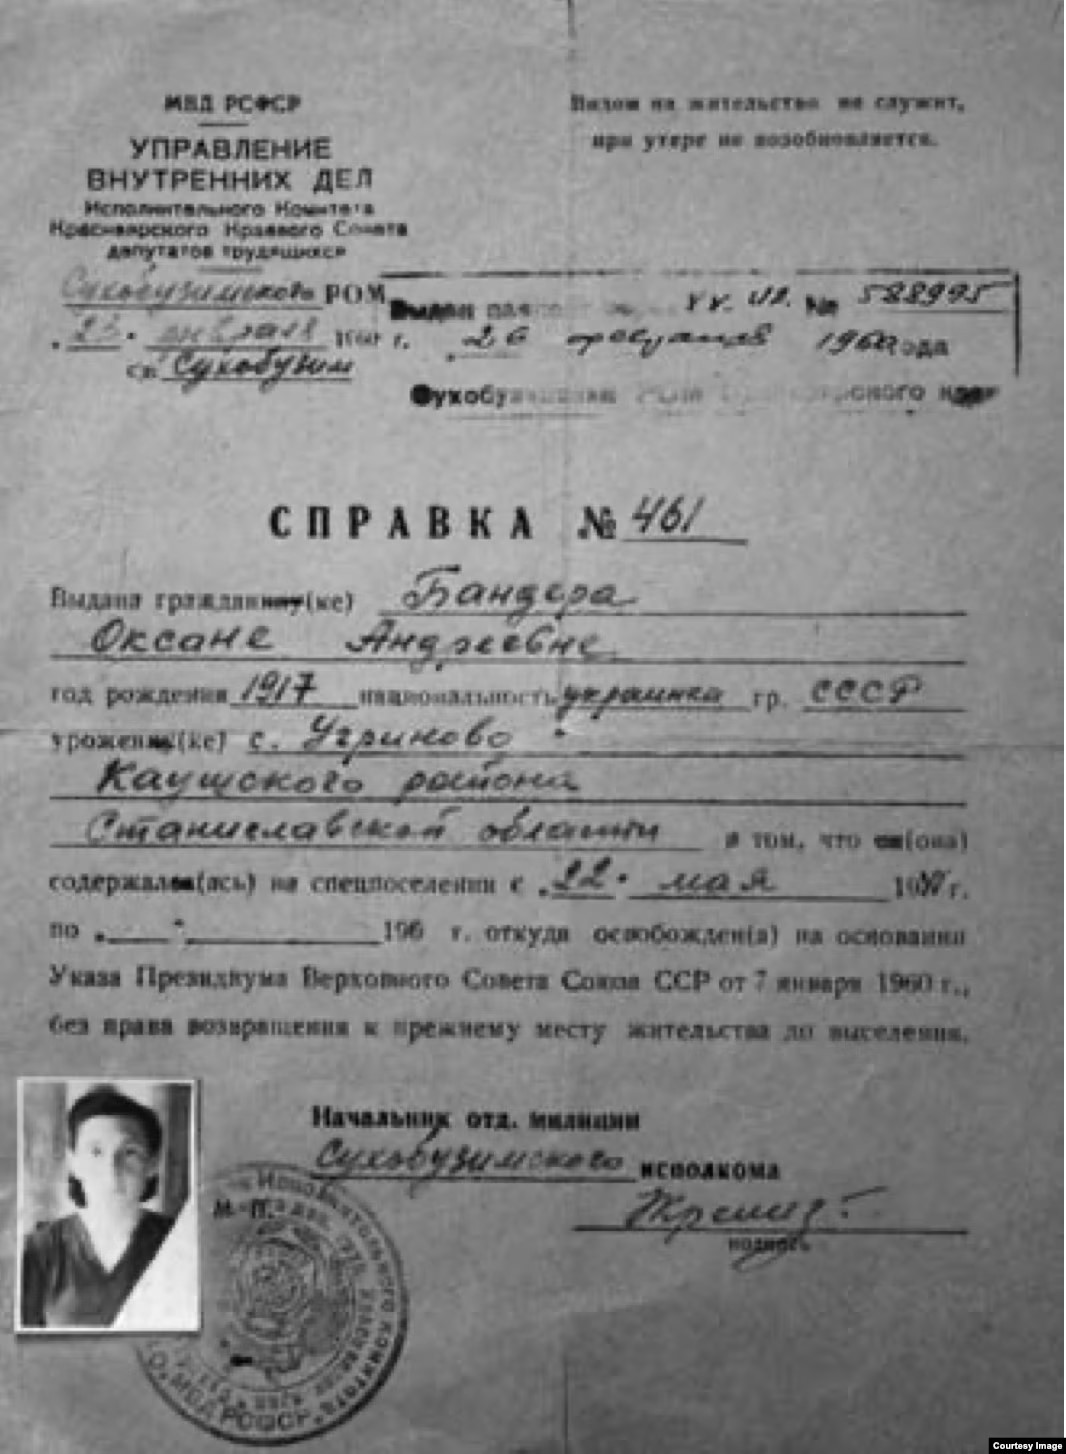 МВД РСФСР
УПРАВЛЕНИЕ
ВНУТРЕННИХ ДЕЛ
Исполнительного Комитета
Красноярского Краевого Совета
депутатов трудящихся
Сухобузимского РОМ
"23" января 1960 г.
с. Сухобузим
Видом на жительство не служит,
при утере не возобновляется.
Выдан № 588995
26 февраля 1960 года
СПРАВКА № 461
Выдана гражданину(ке) Бандера
Оксане Андреевне
год рождения 1917 национальность украинка гр. СССР
урожен(ке) с. Угриново
Каушского района
Станиславской области в том, что он(она)
содержался(ась) на спецпоселении с "22" мая 19 г.
по " " 196 г. откуда освобожден(а) на основании
Указа Президиума Верховного Совета Союза ССР от 7 января 1960 г.,
без права возвращения к прежнему месту жительства до выселения.
Начальник отд. милиции
Сухобузимского исполкома
подпись
М. П.
МВД РСФСР
Courtesy Image